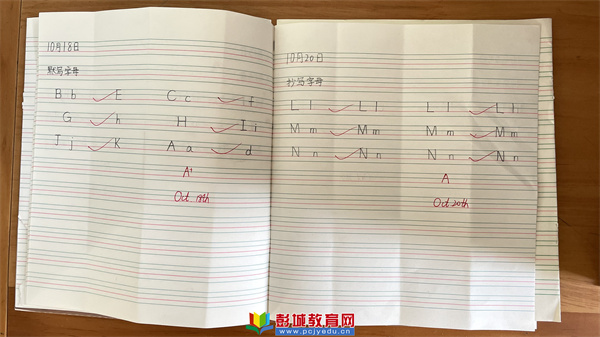 10月18日
默写字母
B b E C c f
G h H I i
J j K A a d
A+
Oct 18th
10月20日
抄写字母
L l L l L l L l
M m M m M m M m
N n N n N n N n
A
Oct 20th
彭城教育网
www.pcjyedu.cn